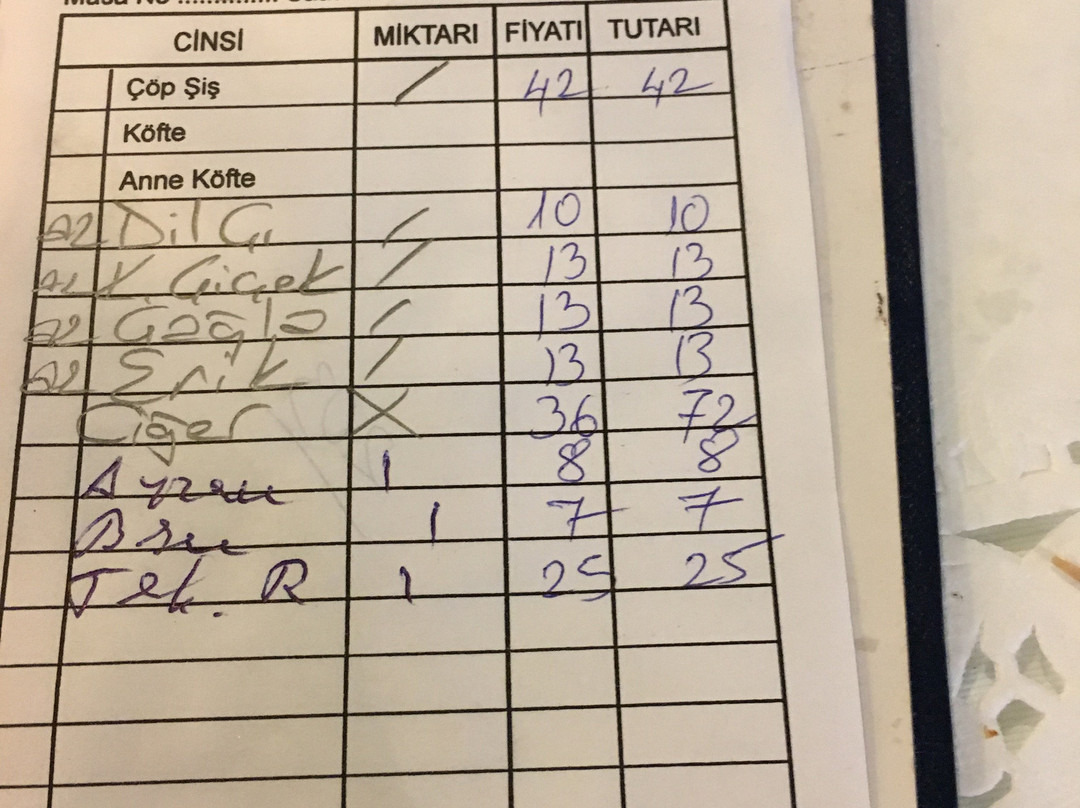 Masa No ..............
CİNSİ MİKTARI FİYATI TUTARI
Çöp Şiş / 42 42
Köfte
Anne Köfte
az Dil Ç. / 10 10
az K. Çiçek / 13 13
az Çağla / 13 13
az Erik / 13 13
Ciğer X 36 72
Ayran 1 8 8
1 7 7
Tek. R 1 25 25